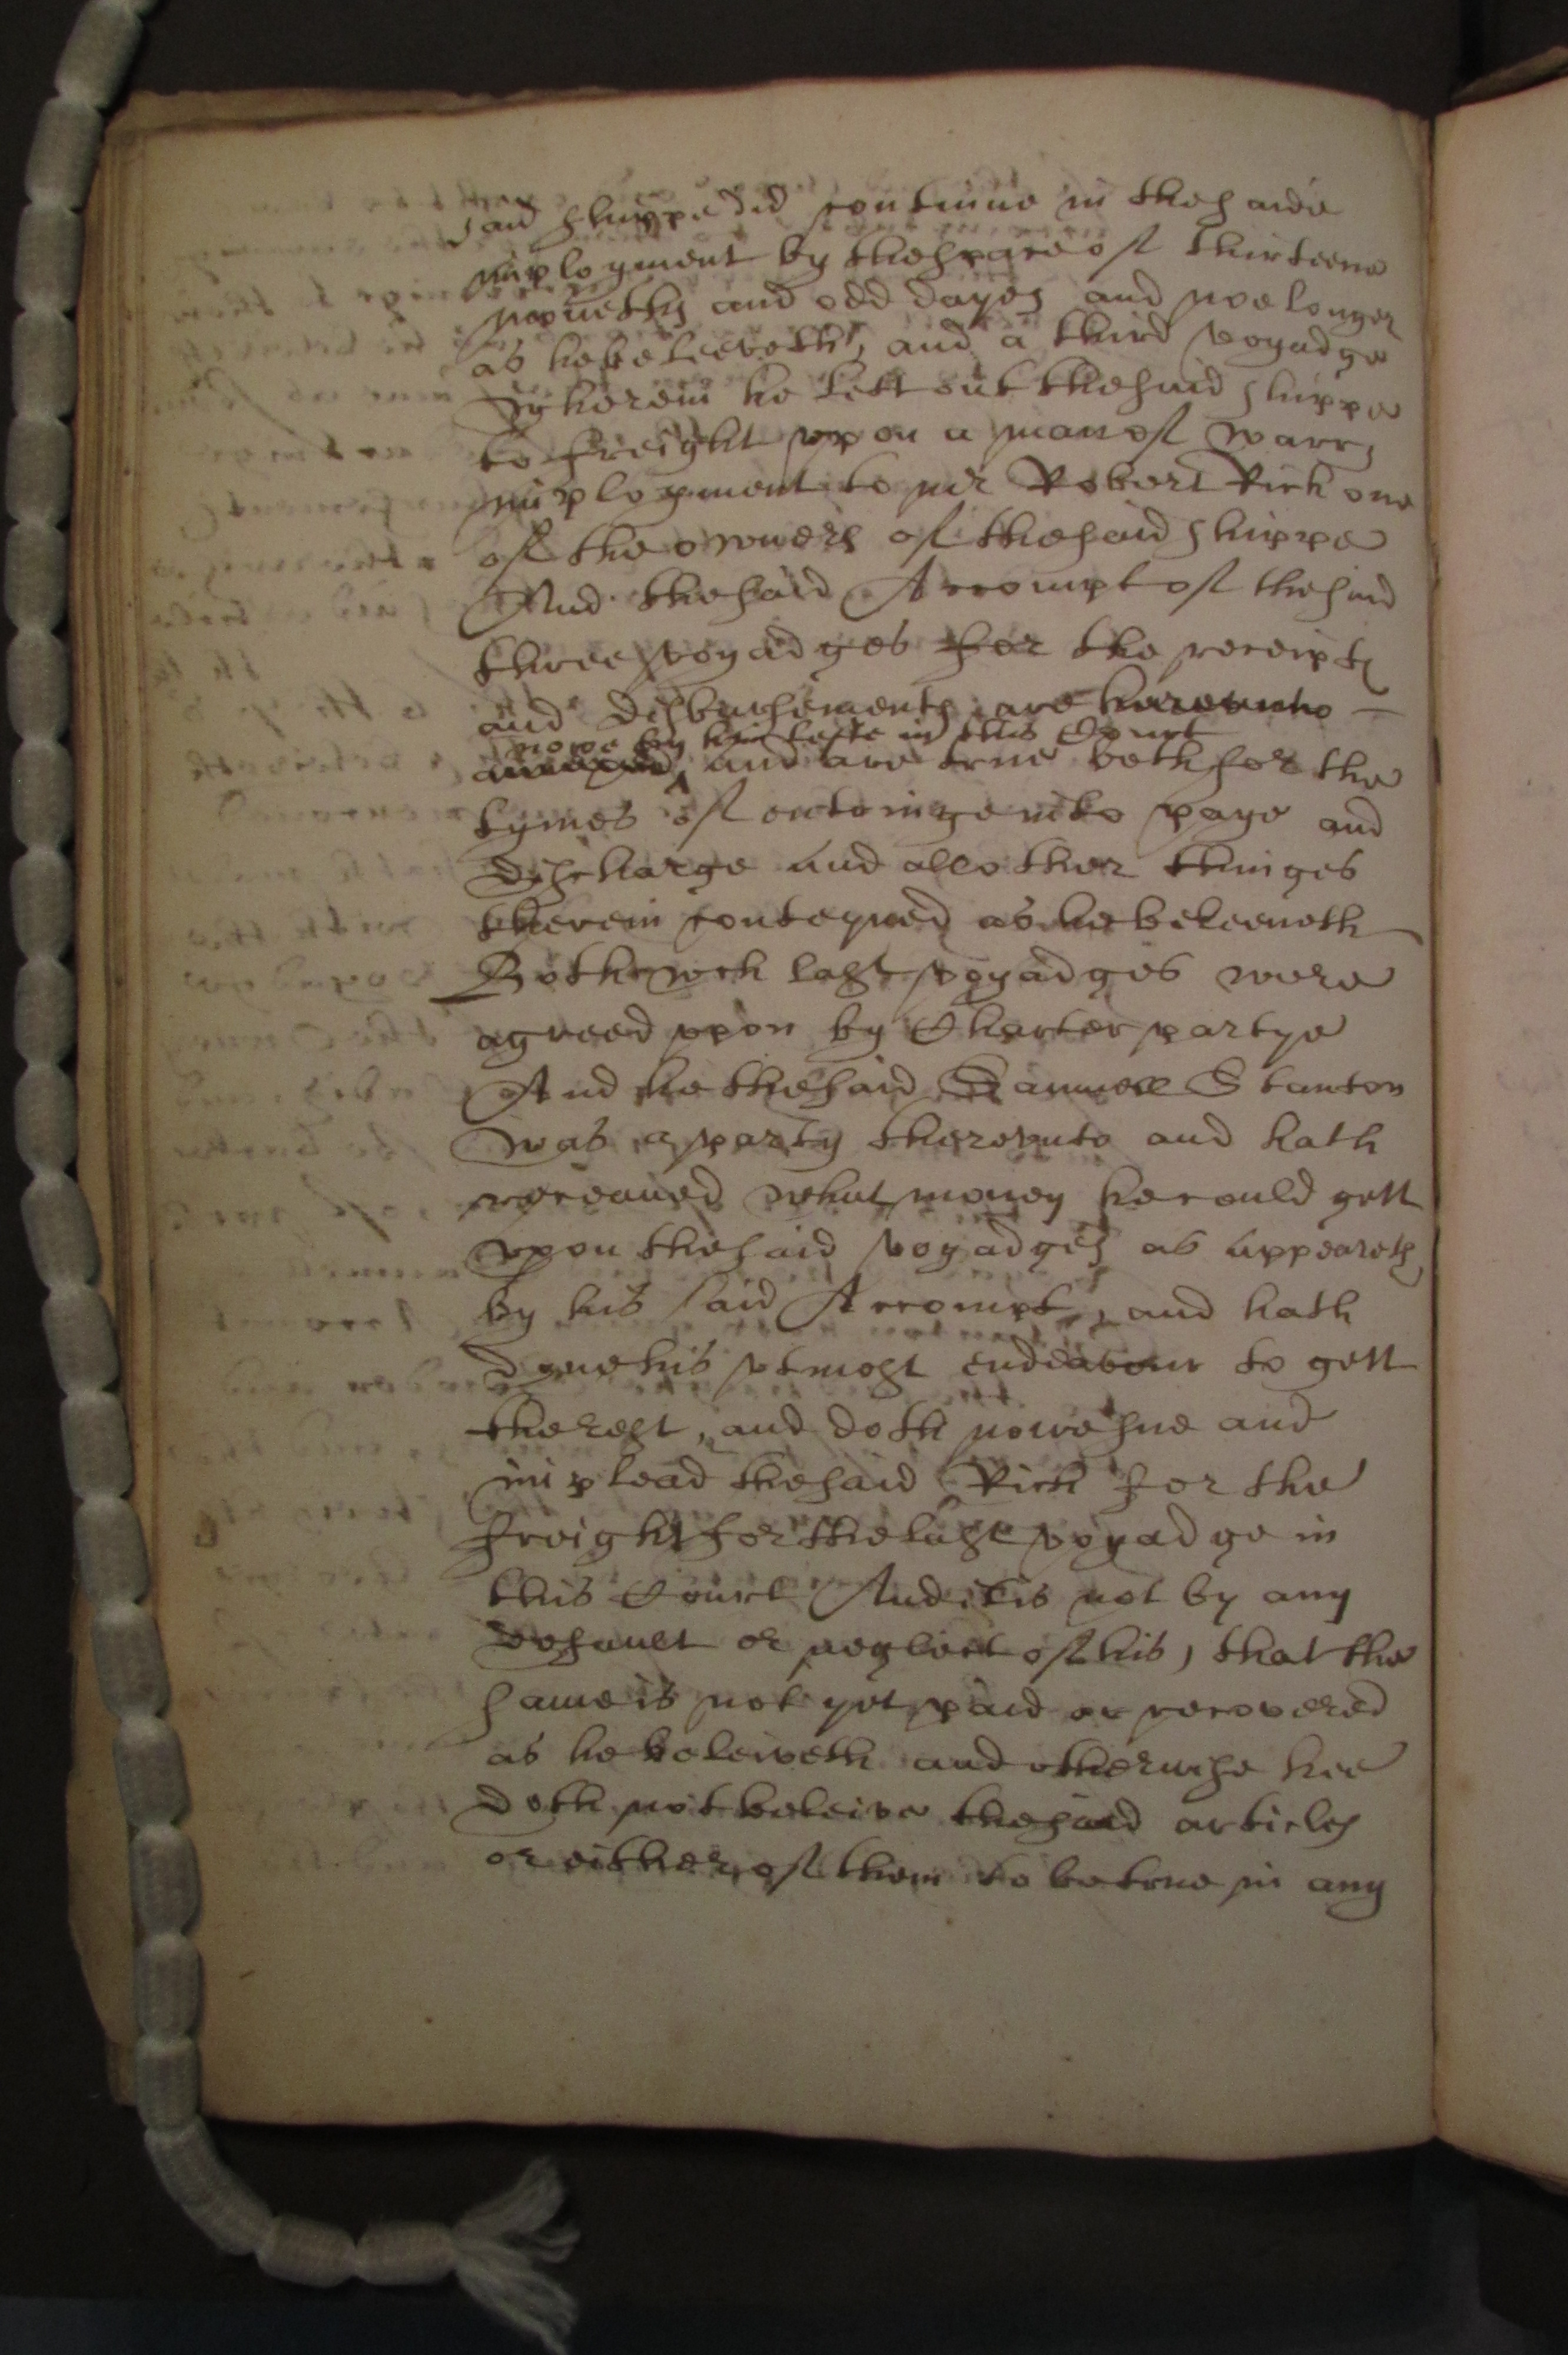 said shippe did continue in the saide
imployment by the space of thirteene
moneths and odd dayes and noe longer
as he beleeveth, and a third voyadge
wherein he lett out the said shippe
to freight vpon a man of warrs
imployment to mr Robert Rich one
of the owners of the said shippe
And the said Accompt of the said
three voyadges for the receipts
and disbursements are hereunto
nowe by him lefte in this Court
annexed, and are true both for the
tymes of entringe into paye and
discharge and all other thinges
therein conteyned as he beleeueth
Both wch last voyadges were
agreed vpon by Charter partye
And he the said Samuell Stanton
was a party therevnto and hath
receaued what money he could gett
vpon the said voyadges as appeareth
by his said Accompt, and hath
done his vtmost endeavour to gett
the rest, and doth nowe sue and
implead the said Rich for the
freight for the last voyadge in
this Court And it is not by any
default or neglect of his, that the
same is not yet paid or recovered
as he beleiveth and otherwise hee
doth not beleive the said articles
or either of them to be true in any